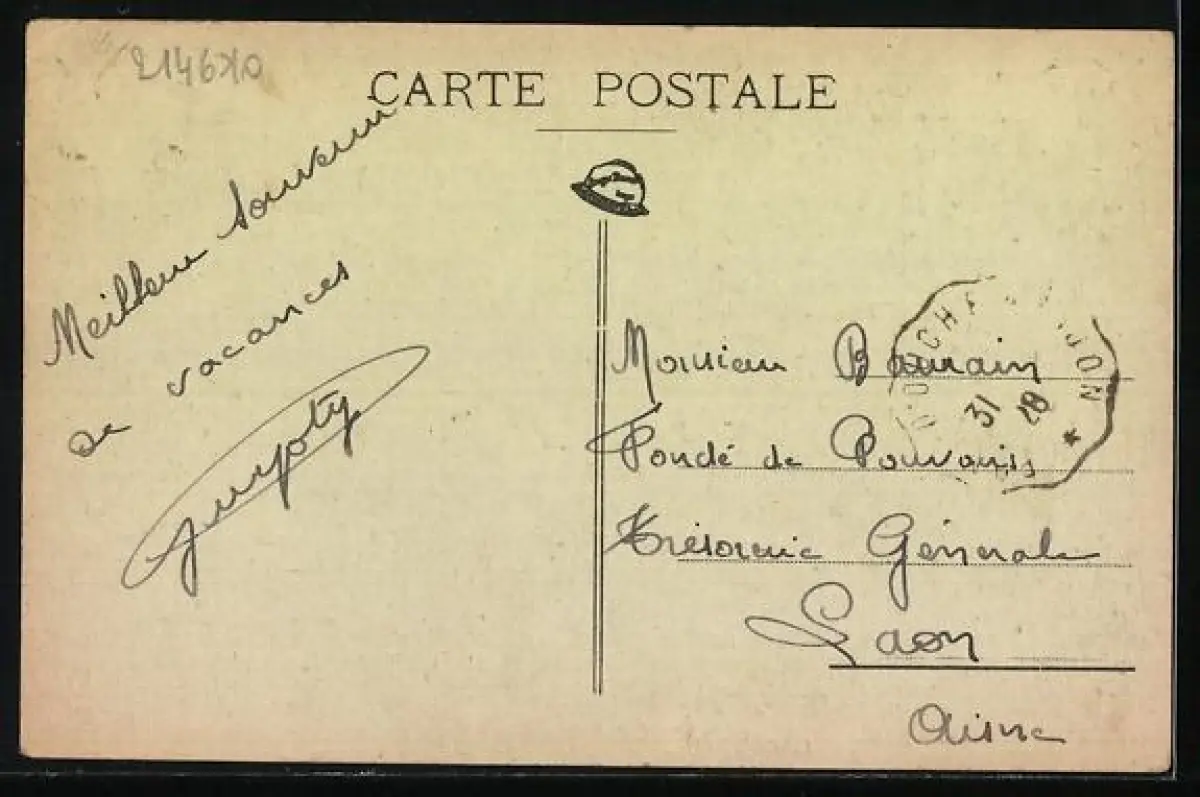 214670
CARTE POSTALE
Meilleur souvenir
de vacances
Monsieur Baurain
Fondé de Pouvoirs
Trésorerie Générale
Laon
Aisne
31
28